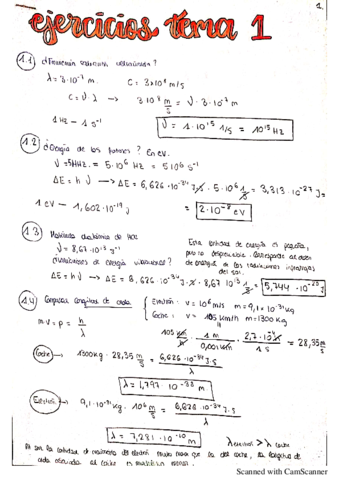 1.
ejercicios tema 1
1.1 ¿Frecuencia radiación ultravioleta?
λ = 3·10⁻⁷ m. C = 3×10⁸ m/s
C = ν·λ → 3·10⁸ m/s = ν·3·10⁻⁷ m
1 Hz — 1 s⁻¹ ν = 1·10¹⁵ 1/s = 10¹⁵ Hz
1.2 ¿Energía de los fotones? En eV.
ν = 5MHz. = 5·10⁶ Hz = 5·10⁶ s⁻¹
ΔE = h ν → ΔE = 6,626·10⁻³⁴ J·s · 5·10⁶ 1/s = 3,313·10⁻²⁷ J =
1 eV — 1,602·10⁻¹⁹ J = 2·10⁻⁸ eV
1.3 Molécula diatómica de HCl
ν = 8,67·10¹³ s⁻¹
Esta cantidad de energía es pequeña,
pero no despreciable. Corresponde al orden
de energías de las radiaciones infrarrojas
del sol.
ΔE = h ν → ΔE = 6,626·10⁻³⁴ J·s · 8,67·10¹³ 1/s = 5,744·10⁻²⁰ J
1.4 Comparar longitud de onda
Electrón: v = 10⁶ m/s m = 9,1·10⁻³¹ kg
Coche: v = 105 km/h m = 1300 kg
m v = p = h/λ
105 km/h · 1 m/0,001 km · 2,7·10⁻⁴ h/1 s = 28,35 m/s
Coche → 1300 kg · 28,35 m/s = 6,626·10⁻³⁴ J·s/λ
λ = 1,797·10⁻³⁸ m
Electrón → 9,1·10⁻³¹ kg · 10⁶ m/s = 6,626·10⁻³⁴ J·s/λ
λ = 7,281·10⁻¹⁰ m
λ electrón > λ coche
Al ser la cantidad de movimiento del electrón mucho menor que la del coche, la longitud de
onda asociada al coche es muchísimo menor.
Scanned with CamScanner